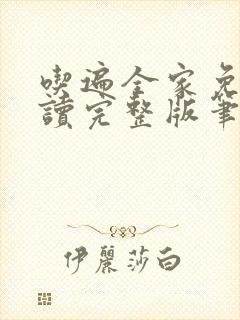 喫遍全家免
讀完整版筆
伊麗莎白